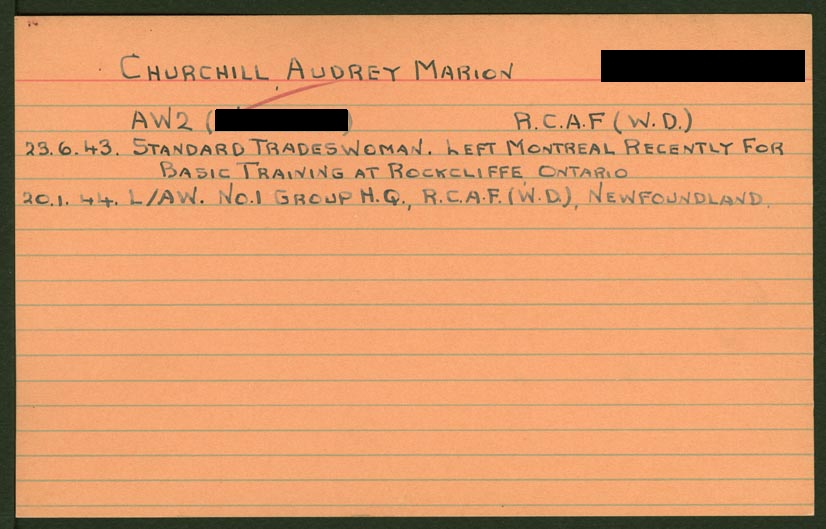 CHURCHILL, AUDREY MARION
AW2 ( ) R.C.A.F (W.D.)
23.6.43. STANDARD TRADESWOMAN. LEFT MONTREAL RECENTLY FOR
BASIC TRAINING AT ROCKCLIFFE ONTARIO
20.1.44. L/AW. NO.1 GROUP H.Q., R.C.A.F. (W.D.), NEWFOUNDLAND.